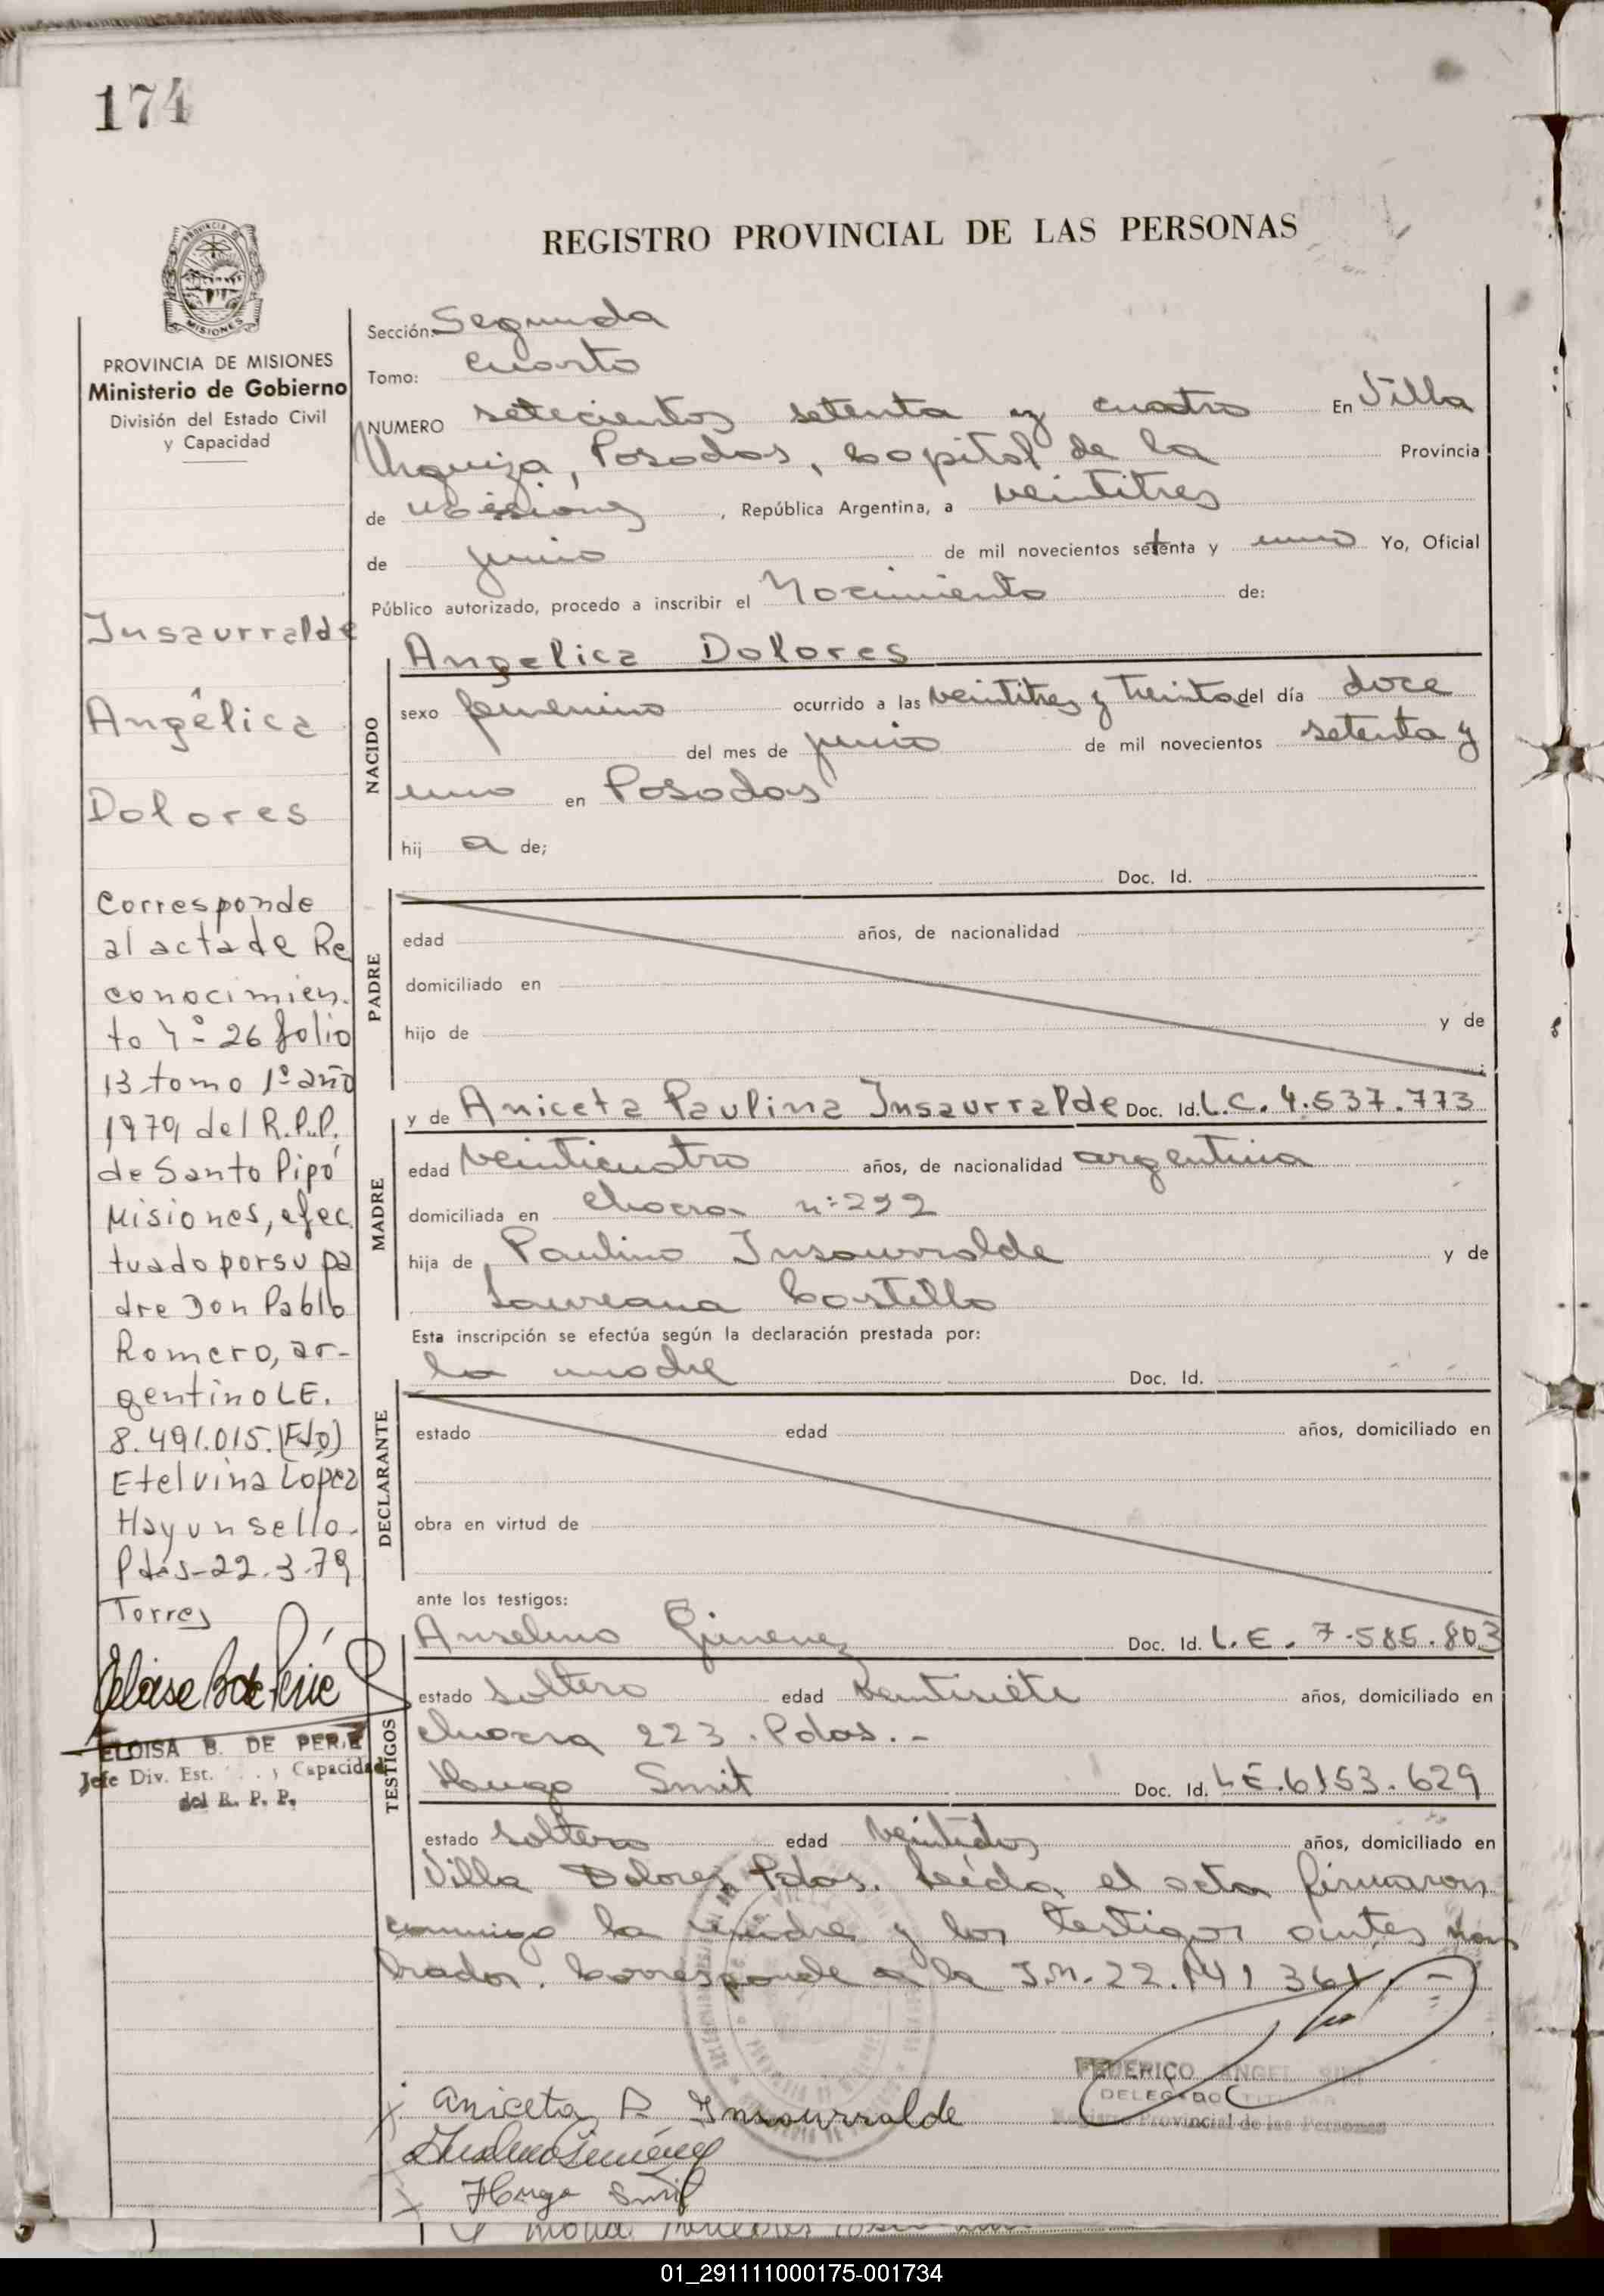 174
REGISTRO PROVINCIAL DE LAS PERSONAS
PROVINCIA DE MISIONES
MISIONES
PROVINCIA DE MISIONES
Ministerio de Gobierno
División del Estado Civil
y Capacidad
Insaurralde
Angélica
Dolores
Corresponde
al acta de Re
conocimien-
to Nº 26 folio
13 tomo 1º año
1979 del R.P.P.
de Santo Pipó
Misiones, efec
tuado por su pa
dre Don Pablo
Romero, ar-
gentino LE.
8.491.015. (Fdo)
Etelvina Lopez
Hay un sello.
Pdas-22.3.79
Torres
ELOISA B. DE PERIE
Jefe Div. Est. y Capacidad
del R. P. P.
Sección: Segunda
Tomo: Cuarto
NUMERO setecientos setenta y cuatro En Villa
Urquiza, Posadas, Capital de la Provincia
de Misiones, República Argentina, a veintitres
de junio de mil novecientos setenta y uno Yo, Oficial
Público autorizado, procedo a inscribir el Nacimiento de:
NACIDO
Angelica Dolores
sexo femenino ocurrido a las veintitres y treinta del día doce
del mes de junio de mil novecientos setenta y
uno en Posadas
hij a de;
Doc. Id.
PADRE
edad años, de nacionalidad
domiciliado en
hijo de y de
MADRE
y de Aniceta Paulina Insaurralde Doc. Id. L.C. 4.537.773
edad veinticuatro años, de nacionalidad argentina
domiciliada en chacra nº 292
hija de Paulino Insaurralde y de
Laureana Castillo
Esta inscripción se efectúa según la declaración prestada por:
la madre Doc. Id.
DECLARANTE
estado edad años, domiciliado en
obra en virtud de
ante los testigos:
TESTIGOS
Anselmo Gimenez Doc. Id. L.E. 7.585.803
estado soltero edad veintisiete años, domiciliado en
chacra 223. Pdas.-
Hugo Smit Doc. Id. L.E. 6153.629
estado soltero edad veintidos años, domiciliado en
Villa Dolores, Pdas. Leída el acta firmaron
conmigo la madre y los testigos antes nom
brados. Corresponde a la I.M. 22.141 361.-
FEDERICO ANGEL
DELEGADO TITULAR
Registro Provincial de las Personas
Aniceta P. Insaurralde
Anselmo Gimenez
Hugo Smit
01_291111000175-001734